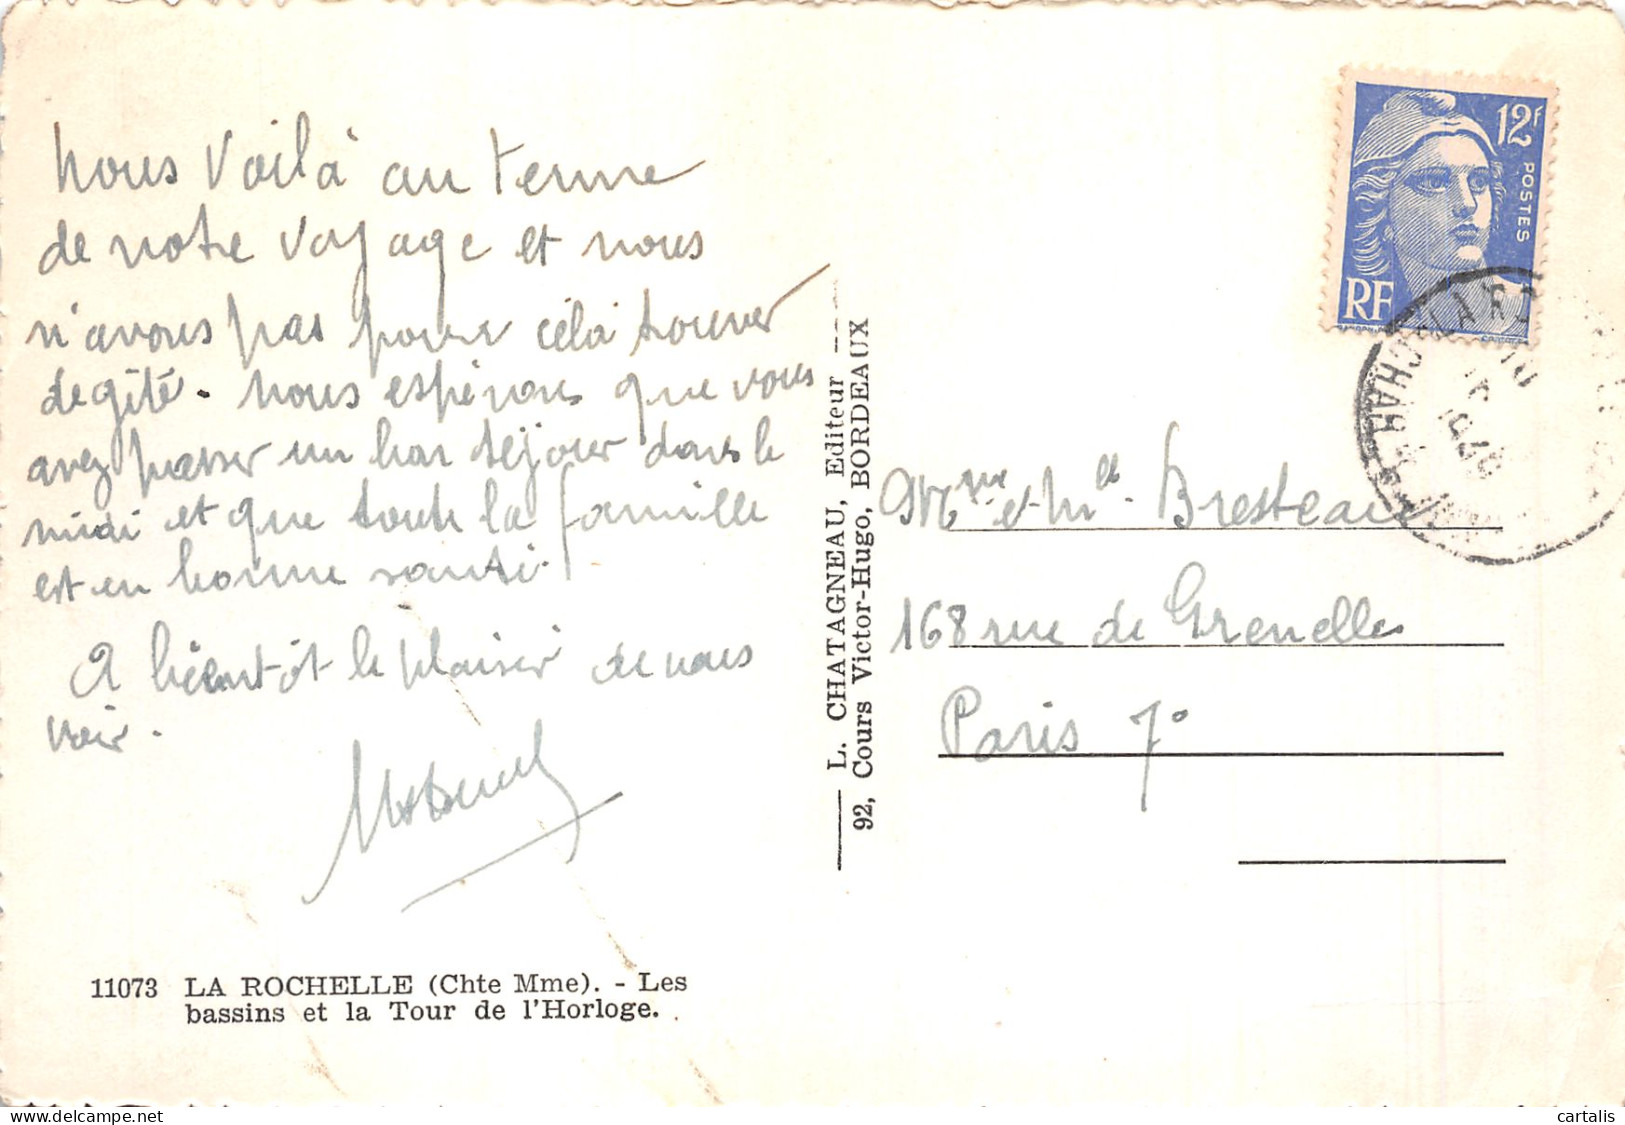 nous voilà au terme
de notre voyage et nous
n'avons pas pour célà trouver
de gîté. nous espérons que vous
avez passer un bon séjour dans le
midi et que toute la famille
est en bonne santé.
A bientôt le plaisir de vous
voir.
11073 LA ROCHELLE (Chte Mme). - Les
bassins et la Tour de l'Horloge.
L. CHATAGNEAU, Editeur
92, Cours Victor-Hugo, BORDEAUX
12F
POSTES
RF
Mme et Mlle Bresteau
168 rue de Grenelle
Paris 7°
cartalis